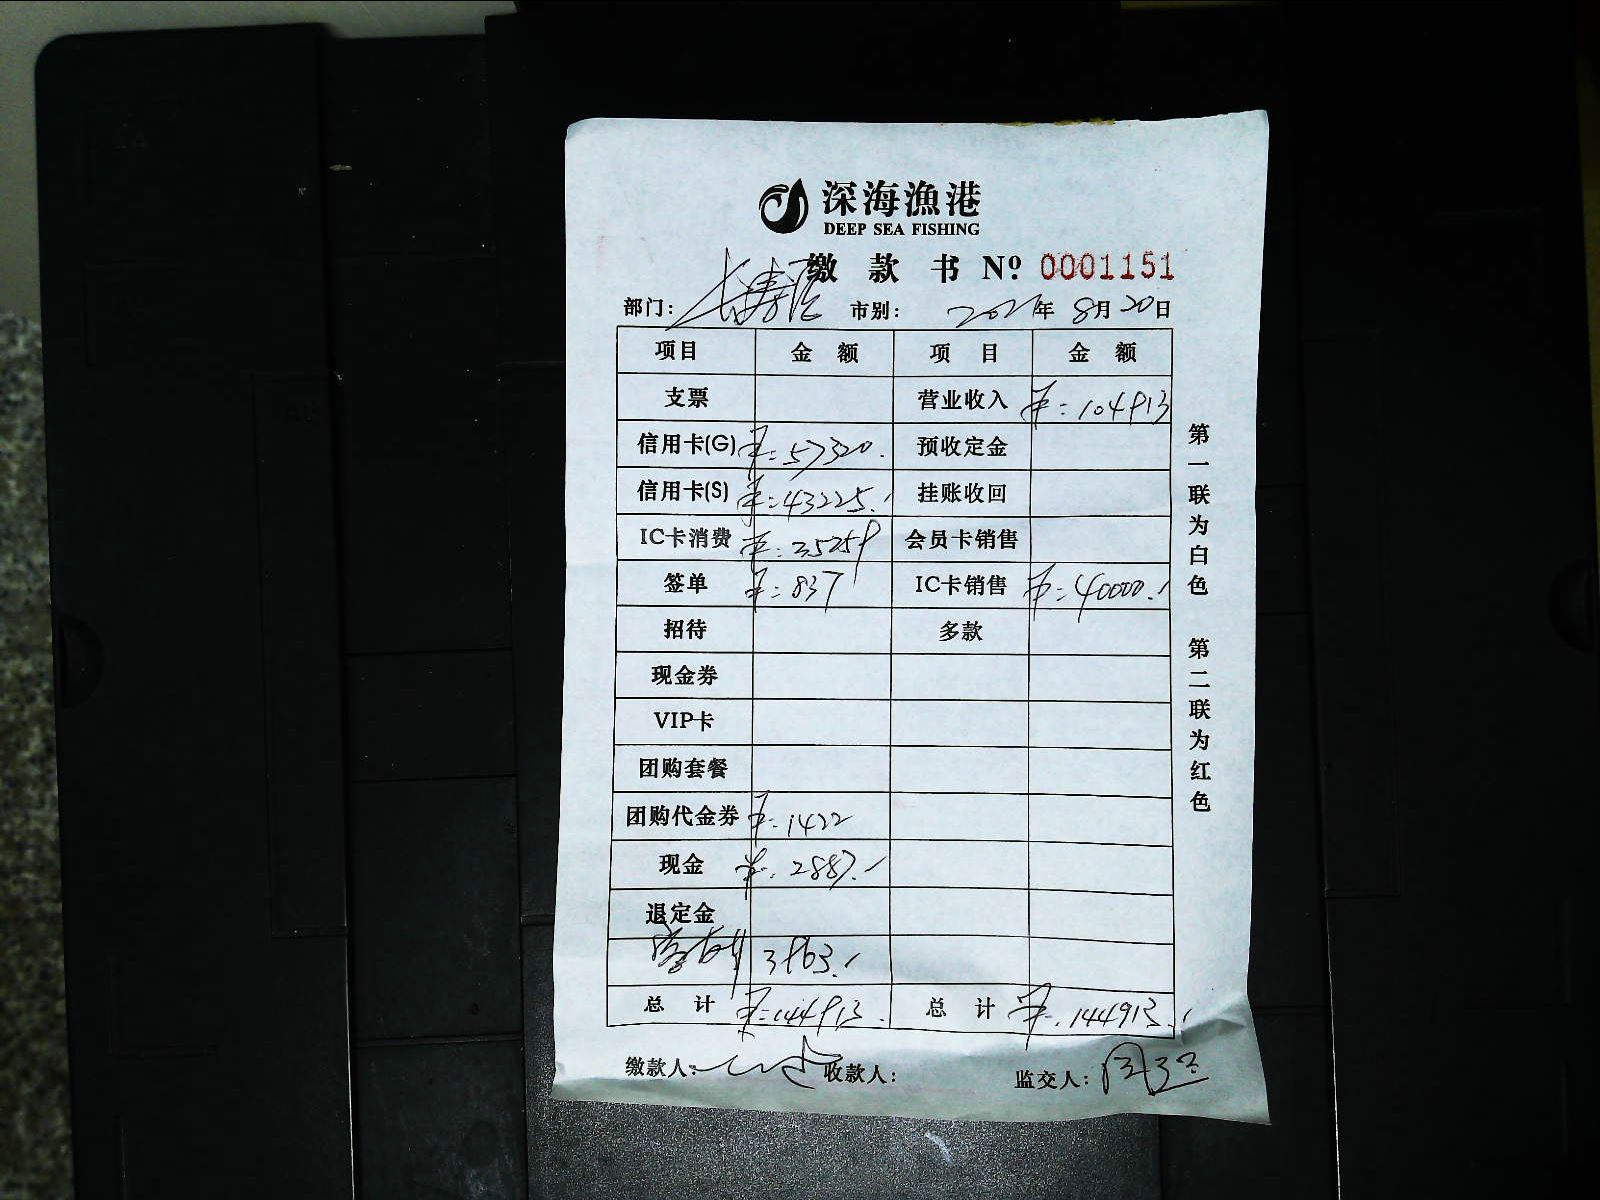 深海漁港
DEEP SEA FISHING
缴款书 Nº 0001151
部门: 长寿路 市别: 2021年 8月 20日
项目 金额 项目 金额
支票 营业收入 ¥: 104913
信用卡(G) ¥: 57320. 预收定金
信用卡(S) ¥: 43225. 挂账收回
IC卡消费 ¥: 35259 会员卡销售
签单 ¥: 837 IC卡销售 ¥: 40000.
招待 多款
现金券
VIP卡
团购套餐
团购代金券 ¥: 1422
现金 ¥: 2887.
退定金
3963.
总计 ¥: 144913. 总计 ¥: 144913.
缴款人: 收款人: 监交人:
第一联为白色 第二联为红色